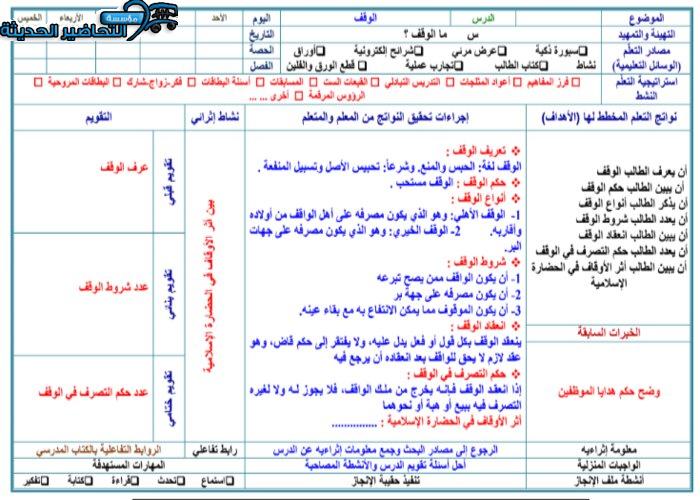 مؤسسة
التحاضير الحديثة
الموضوع
الدرس
الوقف
اليوم
الأحد
الأربعاء
الخميس
التهيئة والتمهيد
س ما الوقف ؟
التاريخ
مصادر التعلم
(الوسائل التعليمية)
سبورة ذكية
عرض مرئي
شرائح إلكترونية
أوراق
نشاط
كتاب الطالب
تجارب عملية
قطع الورق والفلين
الحصة
الفصل
استراتيجية التعلم
النشط
فرز المفاهيم
أعواد المثلجات
التدريس التبادلي
القبعات الست
المسابقات
أسئلة البطاقات
فكر-زواج-شارك
البطاقات المروحية
الرؤوس المرقمة
أخرى ... ...
نواتج التعلم المخطط لها (الأهداف)
إجراءات تحقيق النواتج من المعلم والمتعلم
نشاط إثرائي
التقويم
أن يعرف الطالب الوقف
أن يبين الطالب حكم الوقف
أن يذكر الطالب أنواع الوقف
أن يعدد الطالب شروط الوقف
أن يبين الطالب انعقاد الوقف
أن يعدد الطالب حكم التصرف في الوقف
أن يبين الطالب أثر الأوقاف في الحضارة
الإسلامية
الخبرات السابقة
وضح حكم هدايا الموظفين
تعريف الوقف :
الوقف لغة: الحبس والمنع. وشرعاً: تحبيس الأصل وتسبيل المنفعة .
حكم الوقف : الوقف مستحب .
أنواع الوقف :
1- الوقف الأهلي: وهو الذي يكون مصرفه على أهل الواقف من أولاده
وأقاربه. 2- الوقف الخيري: وهو الذي يكون مصرفه على جهات
البر.
شروط الوقف :
1- أن يكون الواقف ممن يصح تبرعه
2- أن يكون مصرفه على جهة بر
3- أن يكون الموقوف مما يمكن الانتفاع به مع بقاء عينه.
انعقاد الوقف :
ينعقد الوقف بكل قول أو فعل يدل عليه، ولا يفتقر إلى حكم قاض، وهو
عقد لازم لا يحق للواقف بعد انعقاده أن يرجع فيه
حكم التصرف في الوقف :
إذا انعقد الوقف فإنه يخرج من ملك الواقف، فلا يجوز له ولا لغيره
التصرف فيه ببيع أو هبة أو نحوهما
أثر الأوقاف في الحضارة الإسلامية : ...............
بين أثر الأوقاف في الحضارة الإسلامية
تقويم قبلي
عرف الوقف
تقويم بنائي
عدد شروط الوقف
تقويم ختامي
عدد حكم التصرف في الوقف
معلومة إثراءيه
الرجوع إلى مصادر البحث وجمع معلومات إثراءيه عن الدرس
رابط تفاعلي
الروابط التفاعلية بالكتاب المدرسي
الواجبات المنزلية
أحل أسئلة تقويم الدرس والأنشطة المصاحبة
المهارات المستهدفة
أنشطة ملف الإنجاز
تنفيذ حقيبة الإنجاز
استماع
تحدث
قراءة
كتابة
تفكير